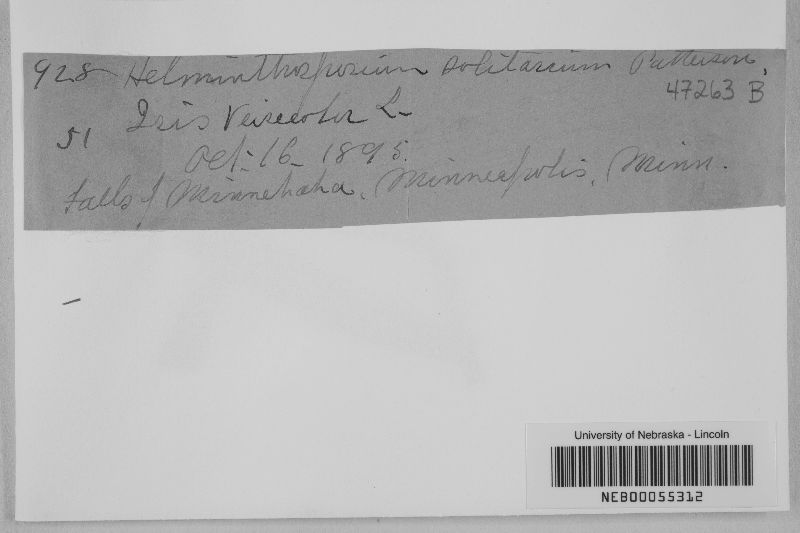 928 Helminthosporium solitarium Patterson,
47263 B
51 Iris Versicolor L
Oct. 16 - 1895.
Falls of Minnehaha, Minneapolis, Minn.
University of Nebraska - Lincoln
NEB00055312